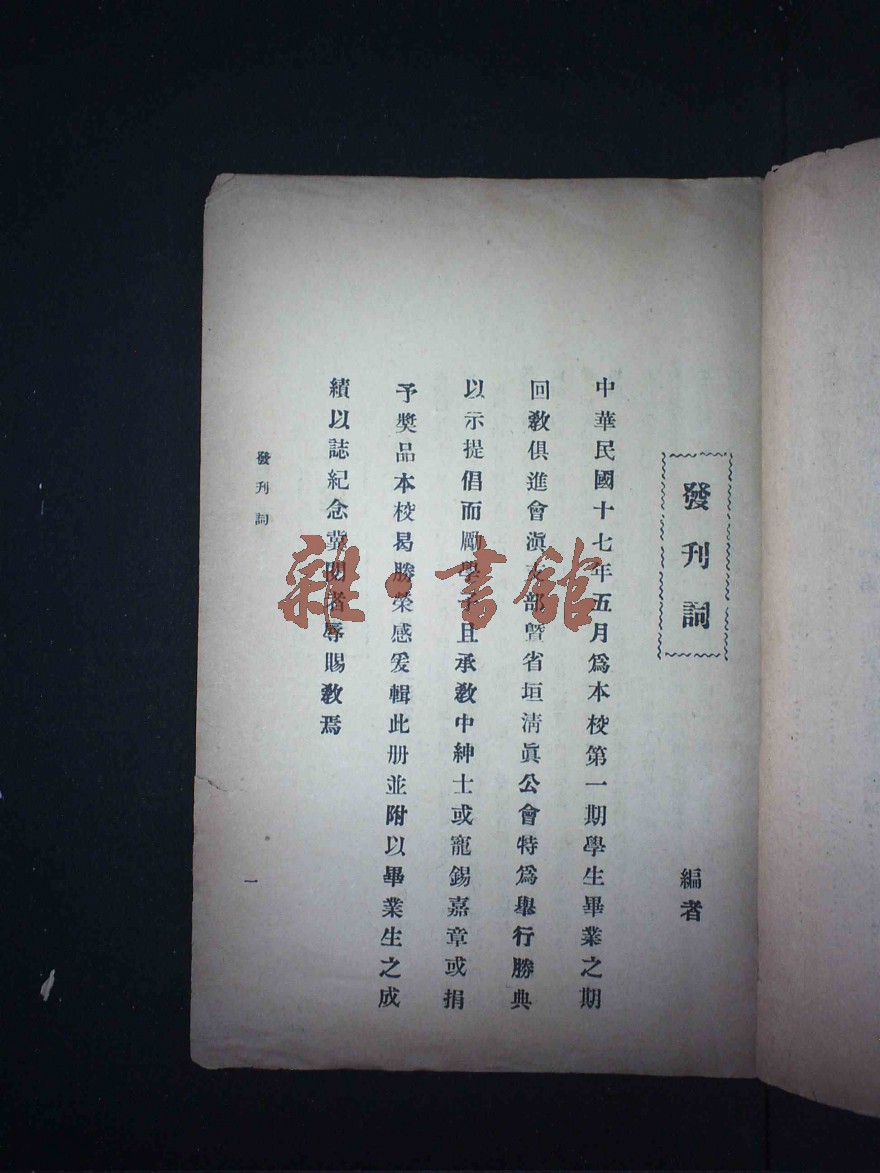 發刊詞
編者
中華民國十七年五月爲本校第一期學生畢業之期
回教俱進會滇支部曁省垣淸眞公會特爲舉行勝典
以示提倡而勵學子且承教中紳士或寵錫嘉章或捐
予奬品本校曷勝榮感爰輯此册並附以畢業生之成
績以誌紀念冀閱者辱賜教焉
發刊詞
一
雜·書館